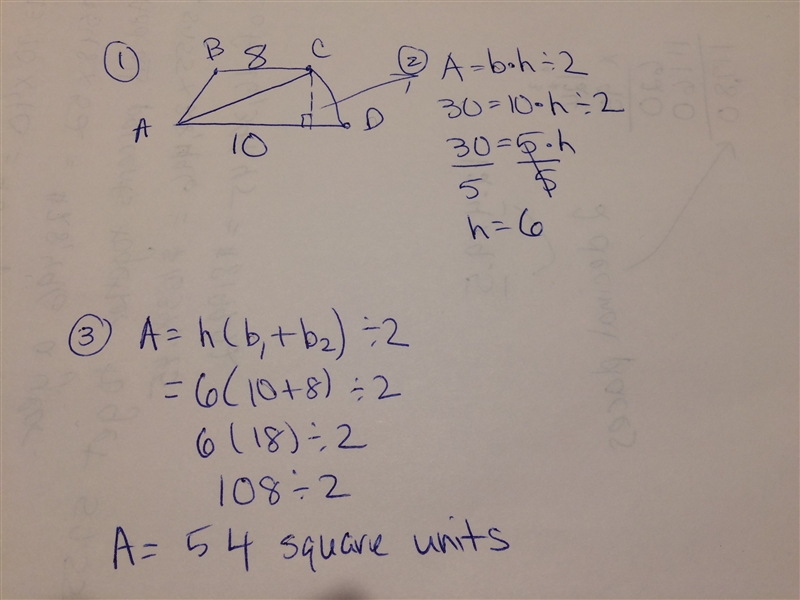 ①
B 8 C
A D
10
② A = b · h ÷ 2
30 = 10 · h ÷ 2
30 = 5 · h
5 5
h = 6
③ A = h(b₁ + b₂) ÷ 2
= 6(10+8) ÷ 2
6(18) ÷ 2
108 ÷ 2
A = 54 square units